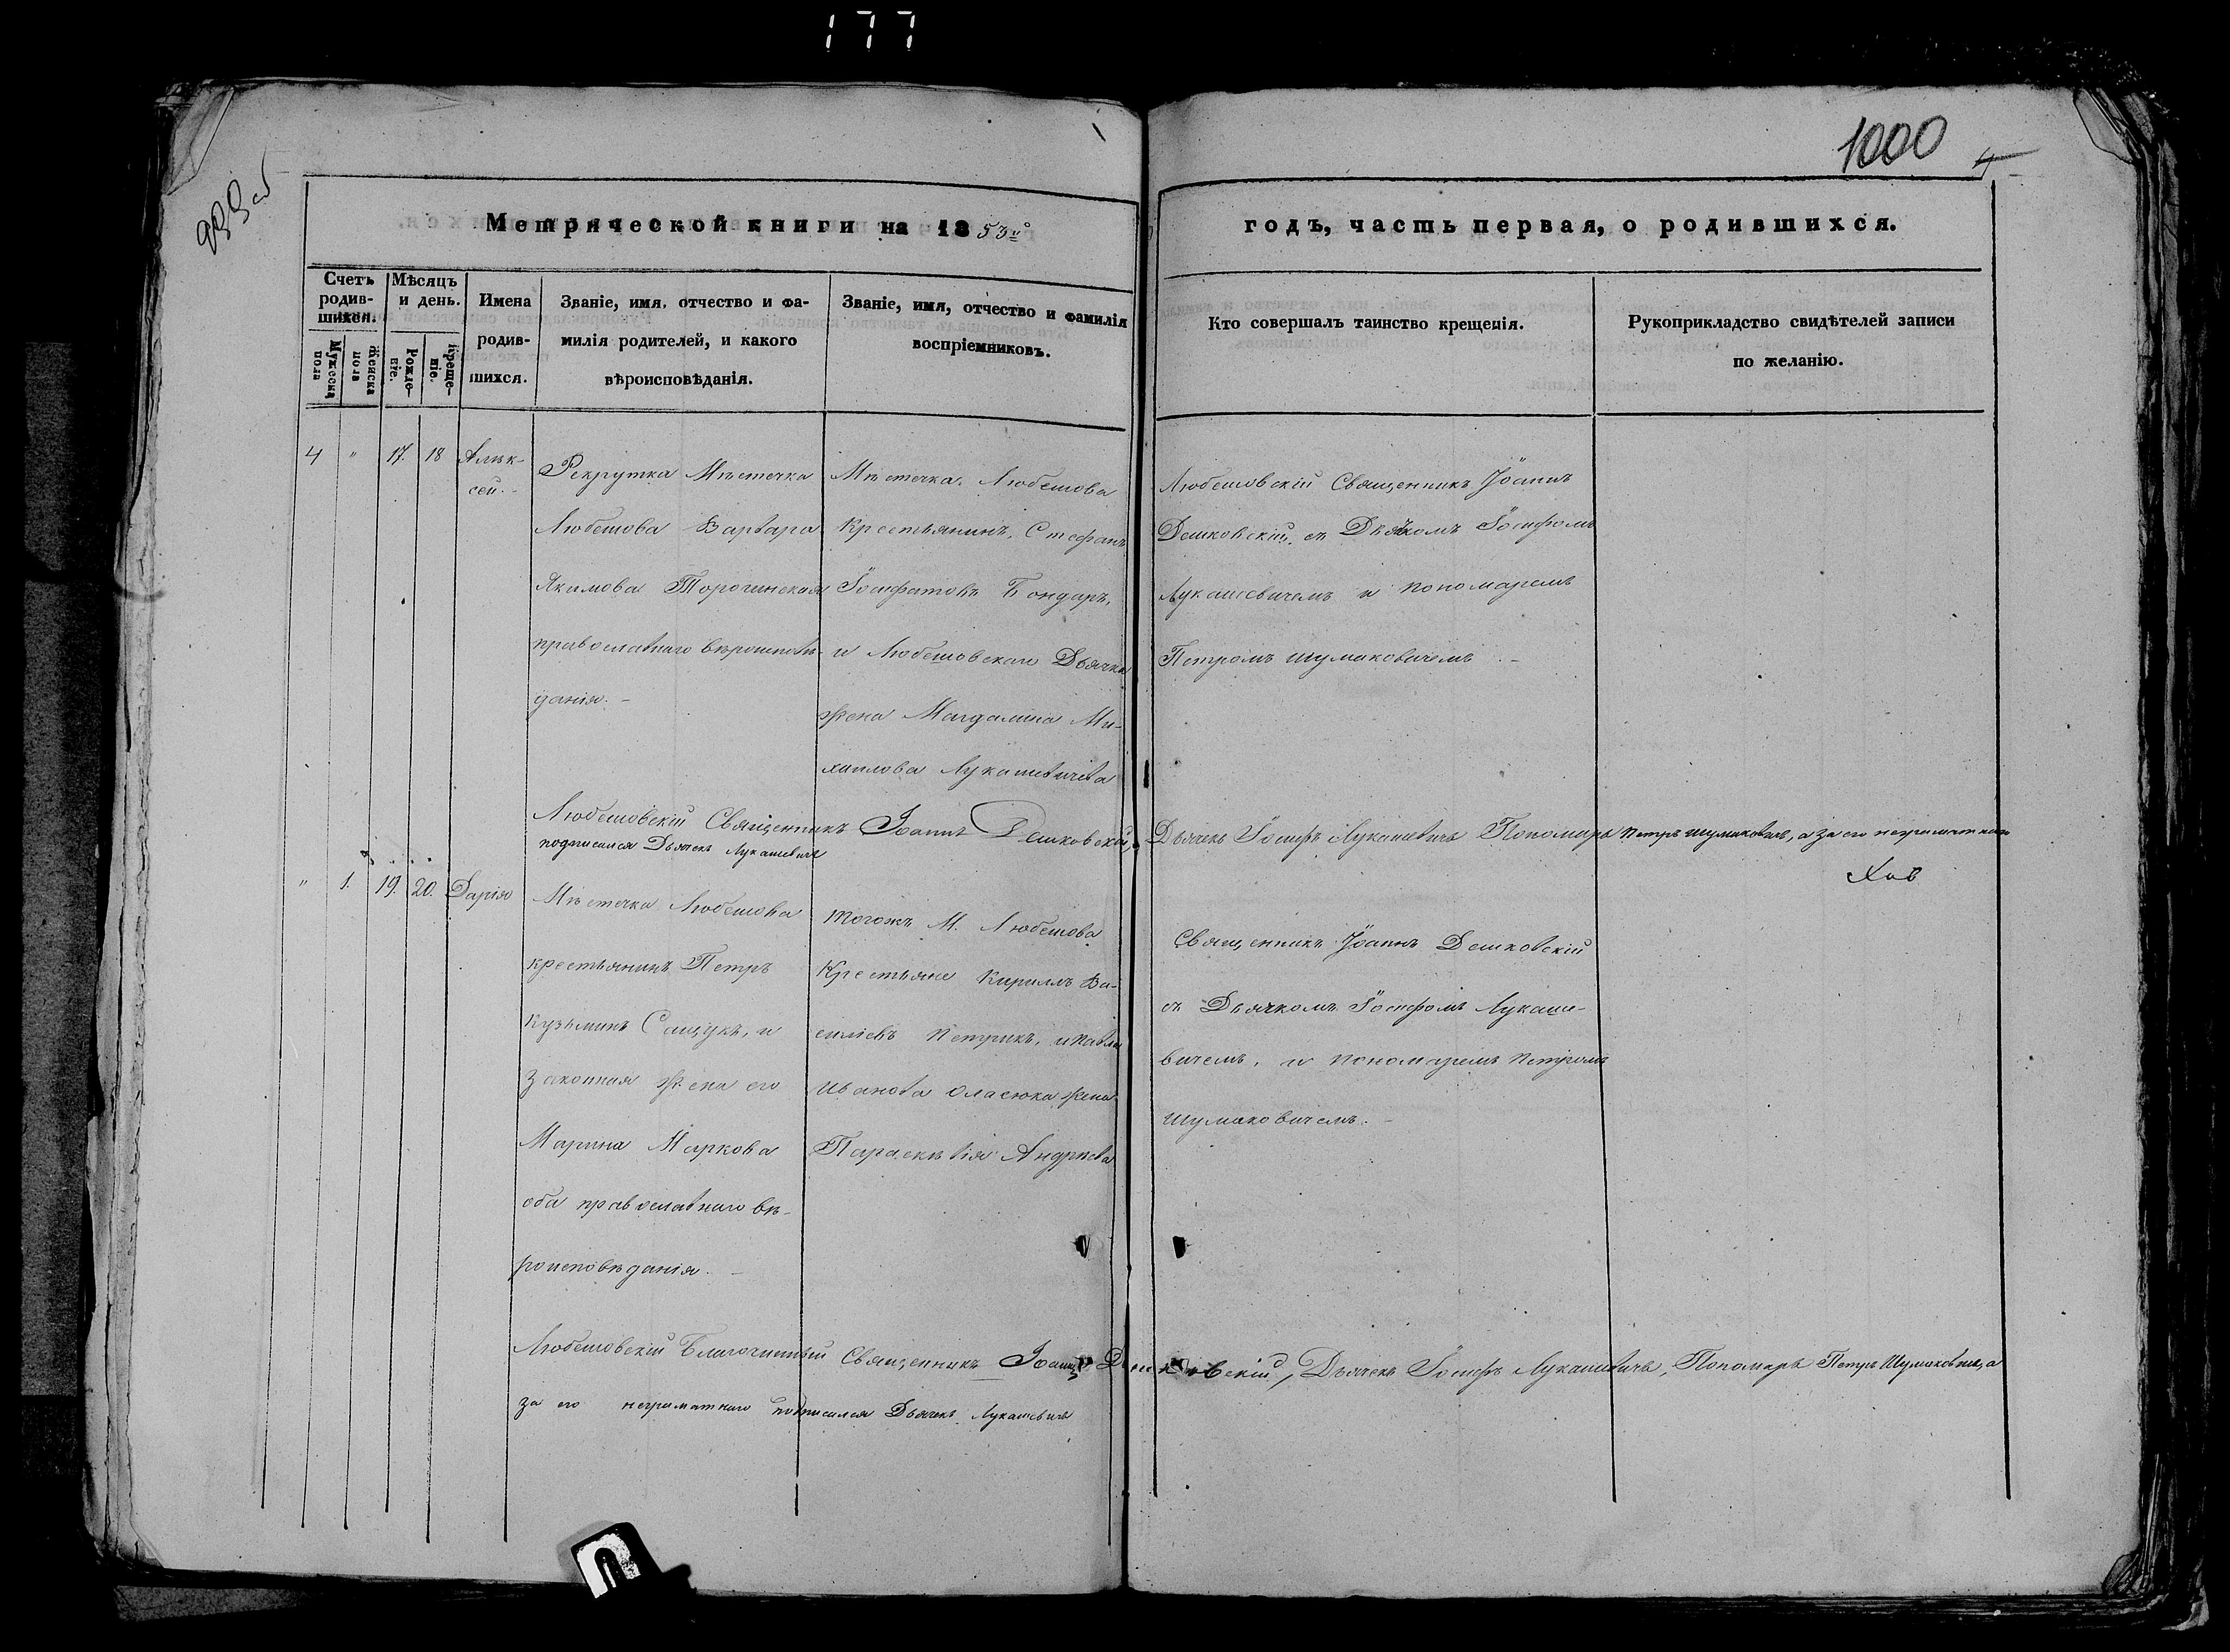 177
1000
4
Метрической книги на 1853го
годъ, часть первая, о родившихся.
Счетъ родив-шихся.
Мужеска пола
Женска пола
Мѣсяцъ и день.
Рожде-ніе.
Креще-ніе.
Имена родив-шихся.
Званіе, имя, отчество и фа-
милія родителей, и какого
вѣроисповѣданія.
Званіе, имя, отчество и фамилія
воспріемниковъ.
Кто совершалъ таинство крещенія.
Рукоприкладство свидѣтелей записи
по желанію.
4 " 17. 18 Алек-
сей.
Рекрутка Мѣстечка
Любешова Варвара
Якимова Торочинская
православнаго вѣроисповѣ-
данія. -
Мѣстечка Любешова
Крестьянинъ, Стефанъ
Іосифатовъ Бондаръ,
и Любешовскаго Дьячка
жена Магдалина Ми-
хаилова Лукашевичева
Любешовскій Священникъ Іоаннъ
Дешковскій, съ Дьячкомъ Іосифомъ
Лукашевичемъ и пономаремъ
Петромъ Шумаковичемъ -
Любешовскій Священникъ Іоаннъ Дешковскій, Дьячекъ Іосифъ Лукашевичъ Пономарь Петръ Шумаковичъ, а за его неграматнаго
подписался Дьячекъ Лукашевичъ
" 1. 19. 20. Дарія
Мѣстечка Любешова
крестьянинъ Петръ
Кузьминъ Сащукъ, и
законная жена его
Марина Маркова
оба православнаго вѣ-
роисповѣданія. -
Тогожъ М. Любешова
Крестьяне Кириллъ Ва-
силіевъ Петрикъ, и Павла
Иванова Оласюка жена
Параскевія Андреева
Священникъ Іоаннъ Дешковскій
съ Дьячкомъ Іосифомъ Лукаше-
вичемъ, и пономаремъ Петромъ
Шумаковичемъ. -
Любешовскій Благочинный Священникъ Іоаннъ Дешковскій, Дьячекъ Іосифъ Лукашевичъ, Пономарь Петръ Шумаковичъ, а
за его неграматнаго подписался Дьячекъ Лукашевичъ